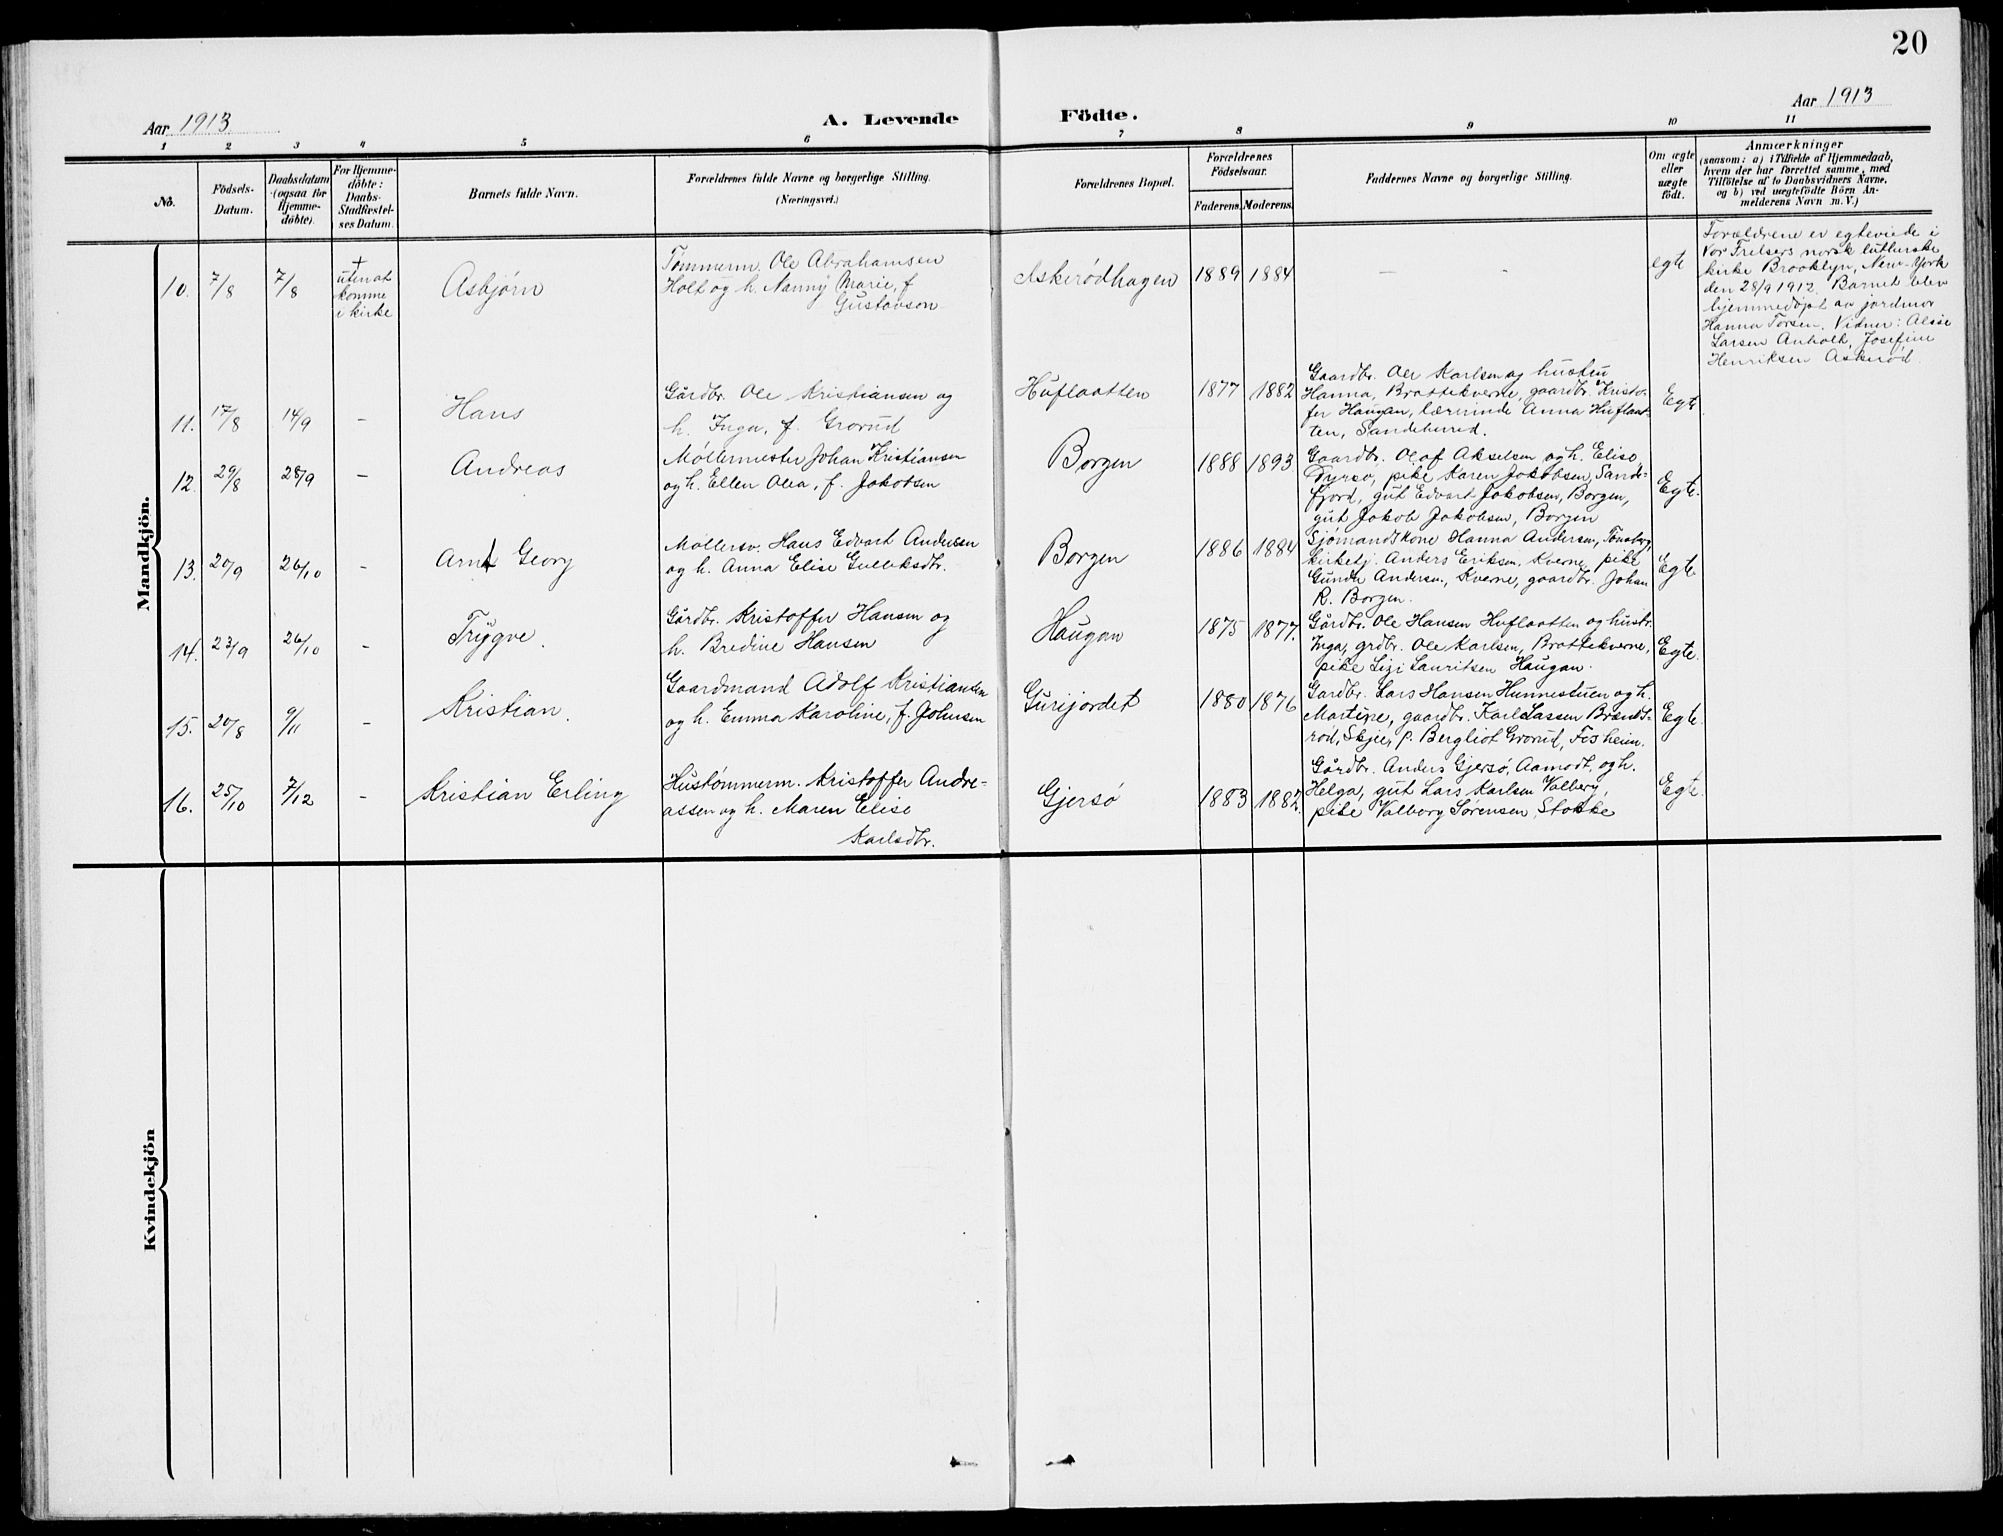 20
Aar 1913
A. Levende Födte.
Aar 1913
1 2 3 4 5 6 7 8 9 10 11
No.
Födsels-
Datum.
Daabsdatum
(ogsaa for
Hjemme-
döbte).
For Hjemme-
döbte:
Daabs-
Stadfæstel-
ses Datum.
Barnets fulde Navn.
Forældrenes fulde Navne og borgerlige Stilling.
(Næringsvei.)
Forældrenes Bopæl.
Forældrenes
Födselsaar.
Faderens. Moderens.
Faddernes Navne og borgerlige Stilling.
Om ægte
eller
uægte
födt.
Anmærkninger
(saasom: a) i Tilfælde af Hjemmedaab,
hvem der har forrettet samme, med
Tilföielse af to Daabsvidners Navne,
og b) ved uægtefödte Börn An-
melderens Navn m. V.)
Mandkjön.
10. 7/8 7/8
+
uten at
komme
i kirke
Asbjørn
Tømmerm. Ole Abrahamsen
Holt og h. Nanny Marie, f
Gustavson
Askerødhagen 1889 1884
- -
egte
Forældrene er egteviede i
Vor Frelsers norsk lutherske
kirke Brooklyn, New-York
den 28/9 1912. Barnet blev
hjemmedøpt av jordmor
Hanna Torsen. Vidner:
Larsen Anholt, Josefine
Henriksen Askerød.
11. 17/8 14/9 -
Hans
Gårdbr. Ole Kristiansen og
h. Inga, f. Grorud
Huflaatten 1877 1882
Gaardbr. Ole Karlsen og hustru
Hanna, Brattekverne, gaardbr. Kristo-
fer Haugan, lærerinde Anna Huflaat-
ten, Sandeherred.
Egte
12. 29/8 28/9 -
Andreas
Møllermester Johan Kristiansen
og h. Ellen Olea, f. Jakobsen
Borgen 1888 1893
Gaardbr. Olaf Akselsen og h. Elise,
Dyrsø, pike Karen Jakobsen, Sande-
fjord, gut Edvart Jakobsen, Borgen,
gut Jakob Jakobsen, Borgen
Egte.
13. 20/9 26/10 -
Arnt Georg
Møllersv. Hans Edvart Andersen
og h. Anna Elise Gulliksdtr.
Borgen 1886 1884
Sjømandskone Hanna Andersen, Tønsberg,
kirketj. Anders Eriksen, Kverne, pike
Gunda Andersen, Kverne, gaardbr. Johan
R. Borgen.
Egte
14. 23/9 26/10 -
Trygve.
Gårdbr. Kristoffer Hansen og
h. Bredine Hansen
Haugan 1875 1877.
Gårdbr. Ole Hansen Huflaatten og hustr.
Inga, grdbr. Ole Karlsen, Brattekverne,
pike Lizi Lauritsen Haugan.
Egte.
15. 20/8 9/11 -
Kristian.
Gaardmand Adolf Kristiansen
og h. Emma Karoline, f. Johnsen
Gurijordet 1880 1876
Gardbr. Lars Hansen Hunnestuen og h.
Martine, gaardbr. Karl Lassen Brands-
rød, Skjee, p. Bergliot Grorud,
Egte.
16. 25/10 7/12 -
Kristian Erling
Hustømmerm. Kristoffer Andre-
assen og h. Maren Elise
Karlsdtr.
Gjersø 1883 1882.
Gårdbr. Anders Gjersø, Aamodt, og h.
Helga, gut Lars Karlsen Valberg,
pike Valborg Sørensen, Stokke
Egte.
Kvindekjön